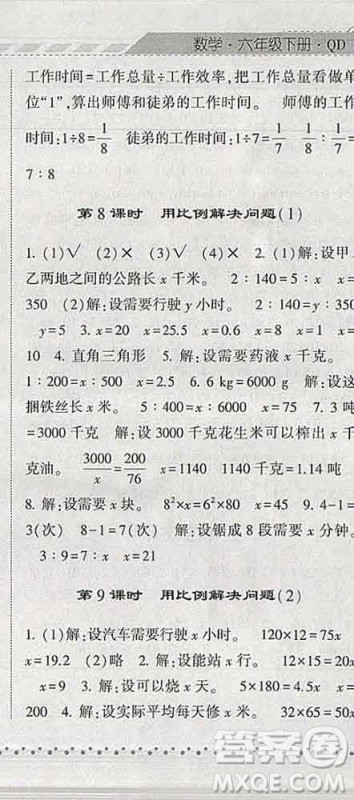 数学·六年级下册·QD
工作时间=工作总量÷工作效率,把工作总量看做单
位“1”,算出师傅和徒弟的工作时间。 师傅的工作
时间:1÷8=1/8 徒弟的工作时间:1÷7=1/7 1/7:1/8=
7:8
第8课时 用比例解决问题(1)
1.(1)√ (2)× (3)√ (4)× 2.(1)解:设甲、
乙两地之间的公路长x千米。 2:140=5:x x=
350 (2)解:设需要行驶y小时。 2:140=y:
y=5 3.x=20 x=25.5 x=0.6 x=8 x=
10 4.直角三角形 5.解:设需要药液x千克。
1:200=x:500 x=2.5 6.6 kg=6000 解:设这
捆铁丝长x米。 5:400=6000:x x= 7.3吨
=3000千克 解:设3000千克花生米可以榨出x千
克油。 3000/x=200/76 x=1140 1140千克=1.14吨
8.解:设需要x块。 8²×x=6²×200 x= 9.4-1=
3(次) 8-1=7(次) 解:设锯成8段需要x分。
3:9=7:x x=21
第9课时 用比例解决问题(2)
1.(1)解:设汽车需要行x小时。 120×12=75x
x=19.2 (2)略 2.解:设能站x行。 12×15=20x
x= 3.解:设可以烧x天。 5×180=4.5x x=
200 4.解:设实际平均每天修x米。 32×65=
答案圈
MXQE.COM